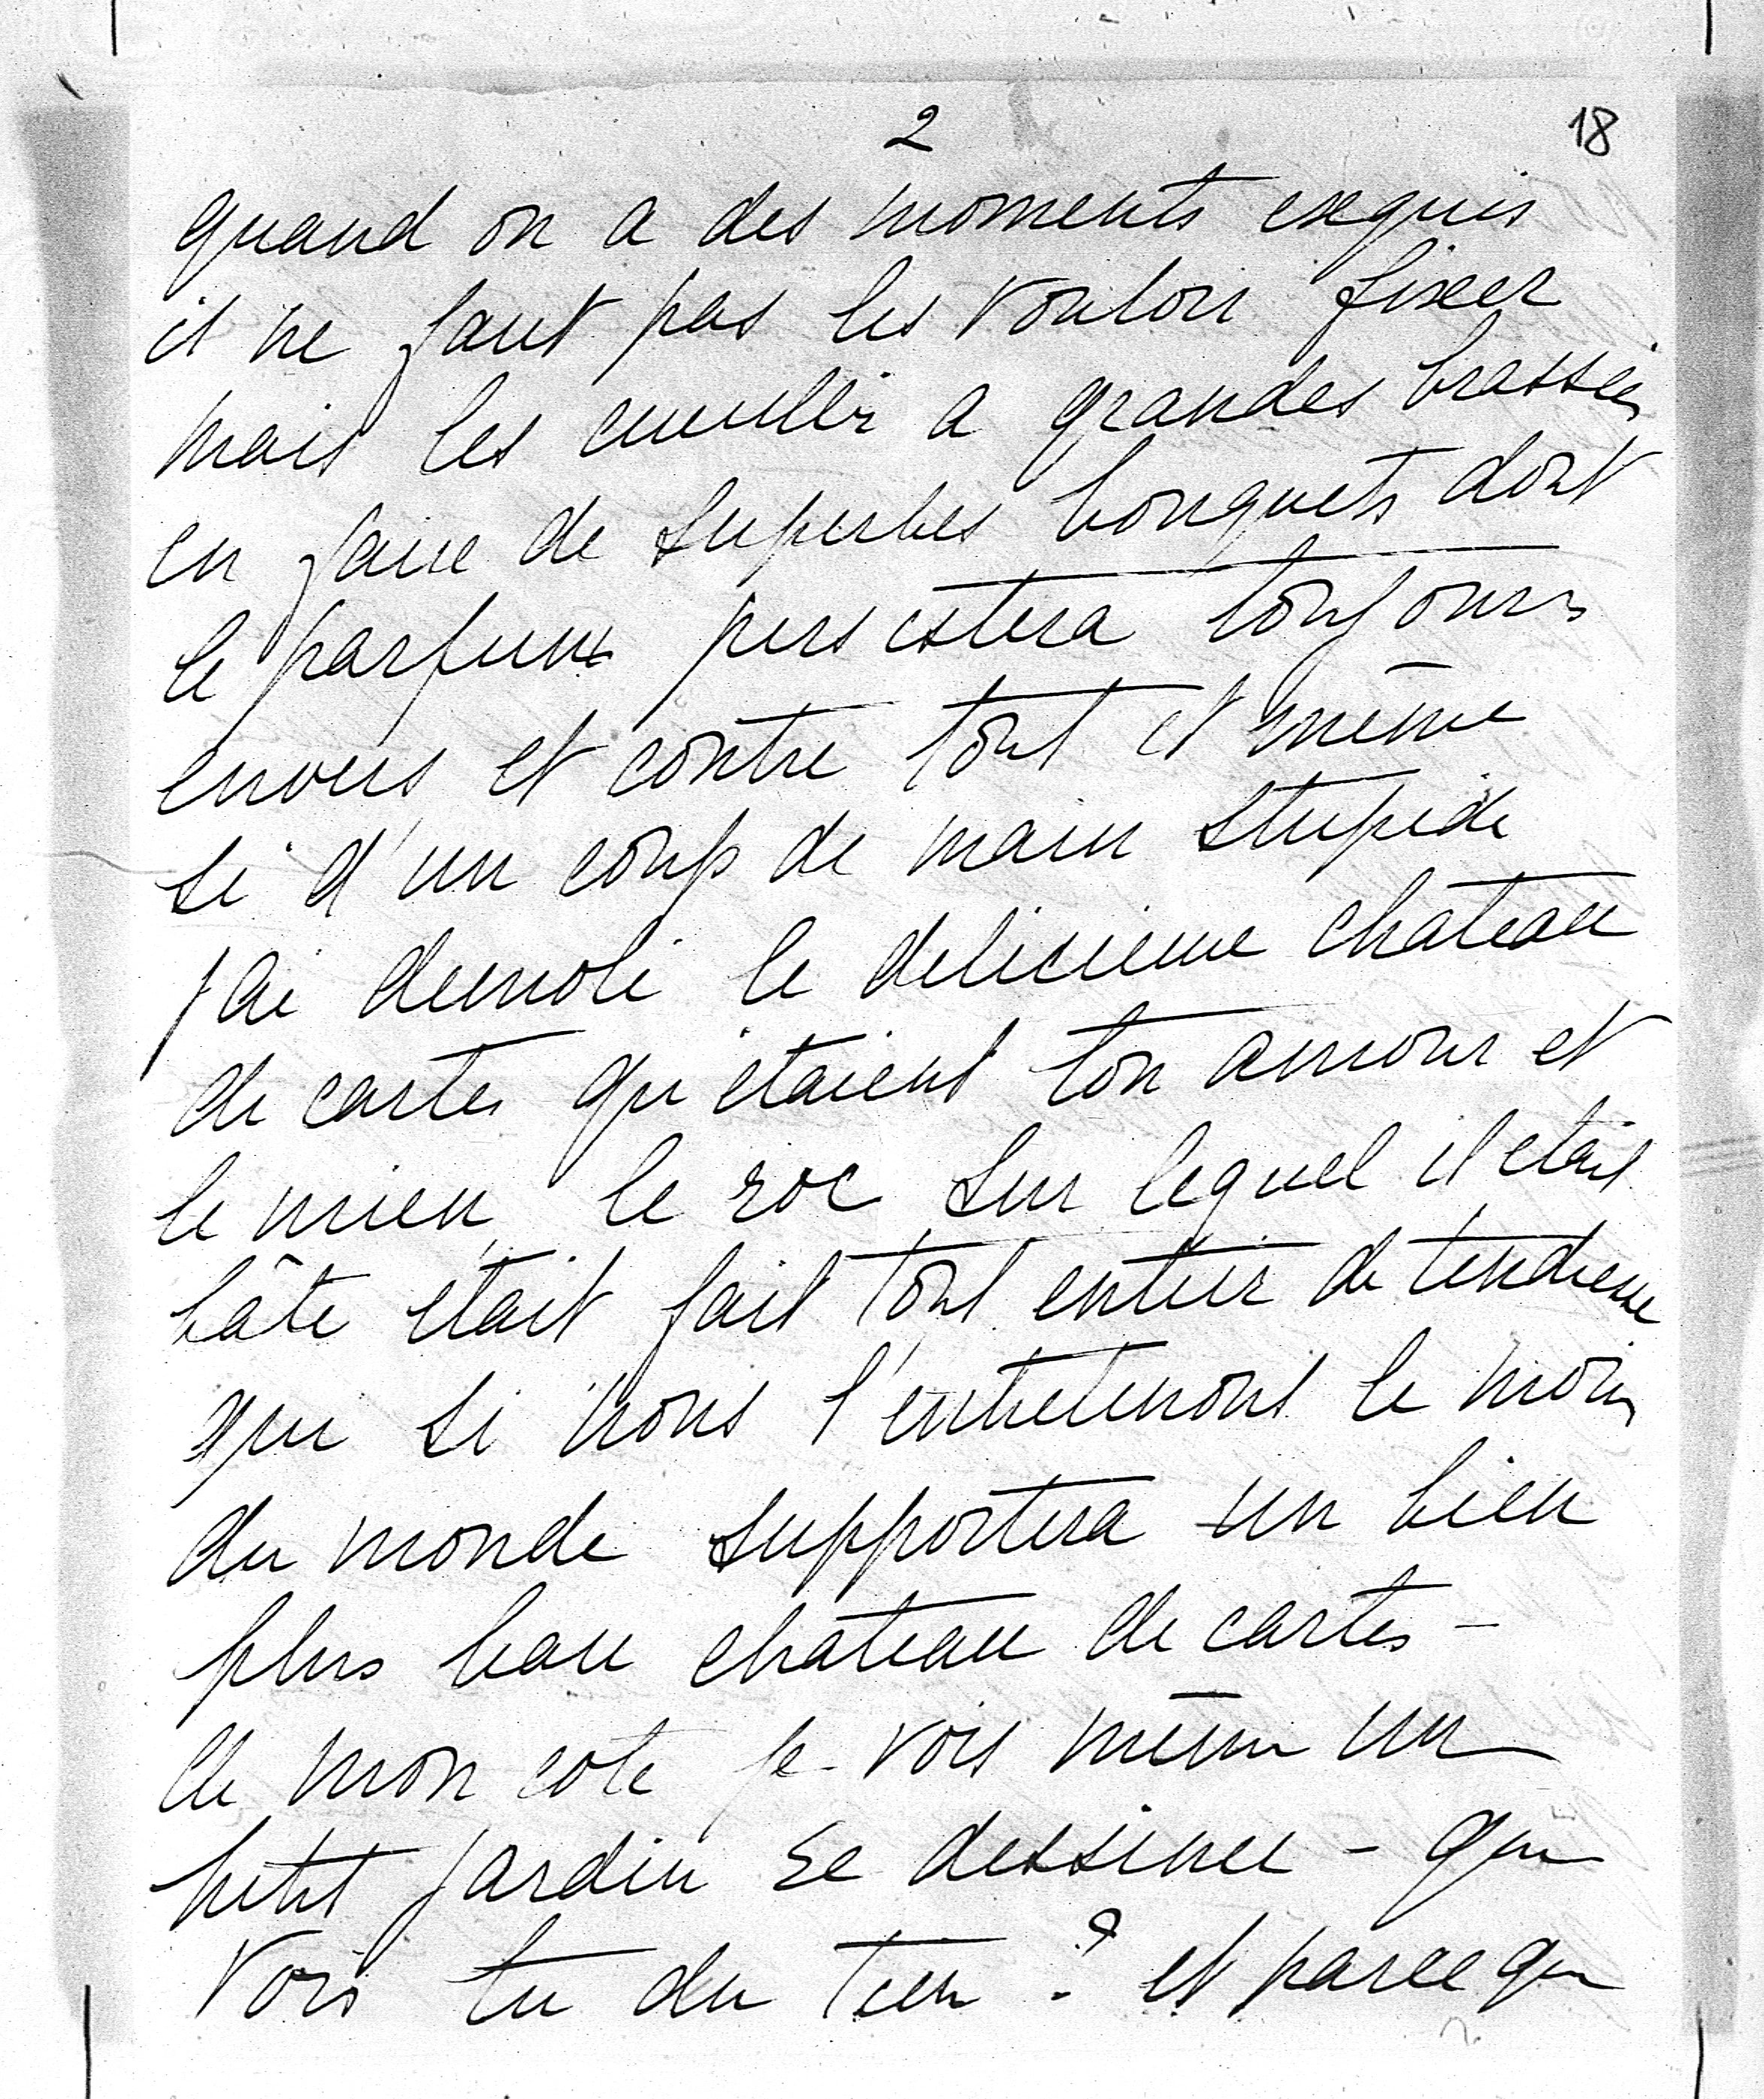 2
18
quand on a des moments exquis
il ne faut pas les vouloir fixer
mais les cueuillir a grandes brassées
en faire de superbes bouquets dont
le parfum persistera toujours
envers et contre tout et même
si d'un coup de main stupide
j'ai demoli le delicieux chateau
de cartes qu'etaient ton amour et
le mien, le roc sur lequel il etait
bâti etait fait tout entier de tendresse
que si nous l'entretenons le moins
du monde supportera un bien
plus beau chateau de cartes -
de mon coté je vois même un
petit jardin se dessiner - que
vois tu du tien ? et parce que